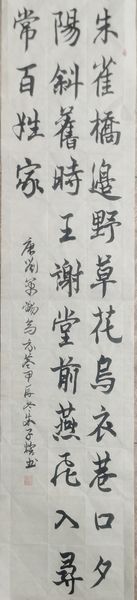 朱雀橋邊野草花烏衣巷口夕
陽斜舊時王謝堂前燕飛入尋
常百姓家
唐劉禹錫烏衣巷甲辰冬朱子